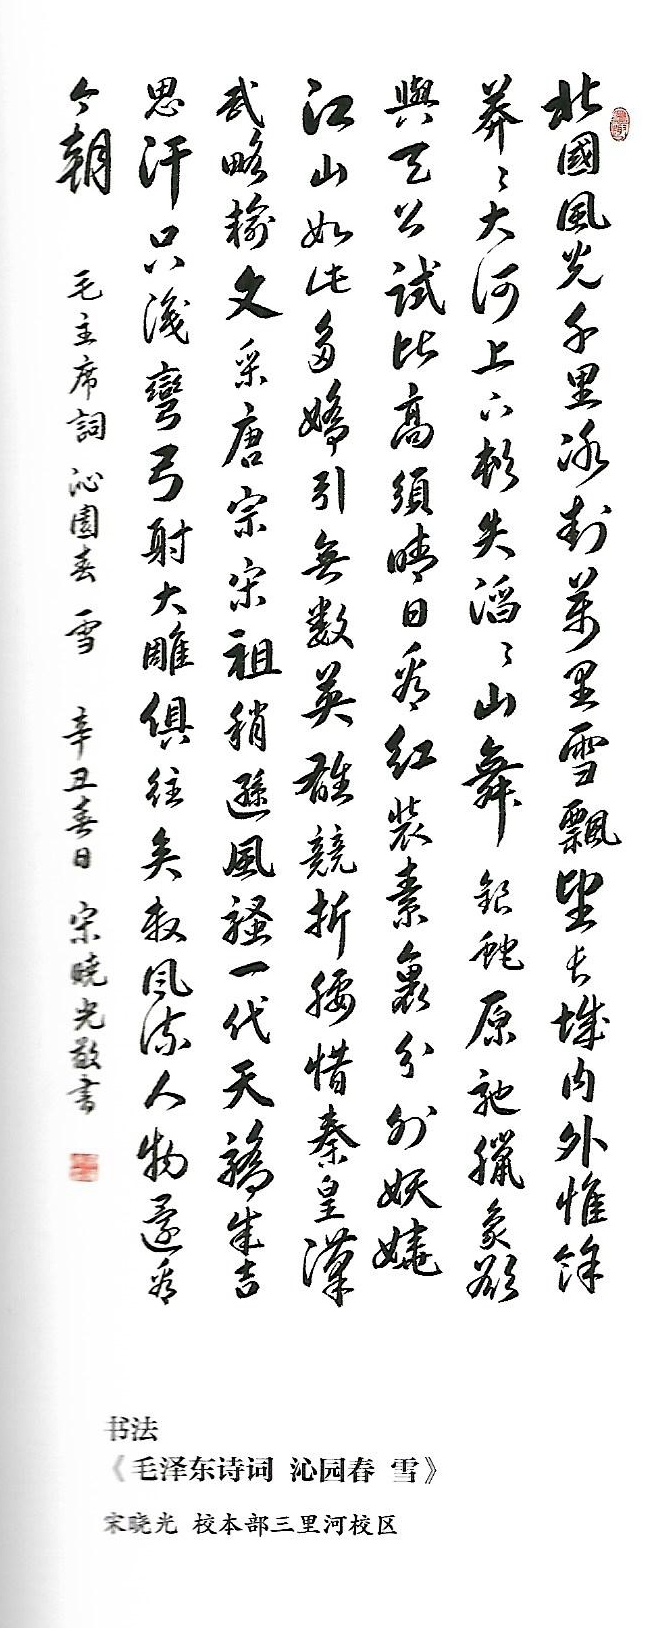 北國風光千里冰封萬里雪飄望长城内外惟餘
莽〻大河上下頓失滔〻山舞銀蛇原馳臘象欲
與天公試比高須晴日看紅裝素裹分外妖嬈
江山如此多嬌引無數英雄競折腰惜秦皇漢
武略輸文采唐宗宋祖稍遜風騷一代天驕成吉
思汗只識彎弓射大雕俱往矣数風流人物還看
今朝 毛主席詞 沁園春 雪 辛丑春日 宋曉光敬書
书法
《毛泽东诗词 沁园春 雪》
宋晓光 校本部三里河校区